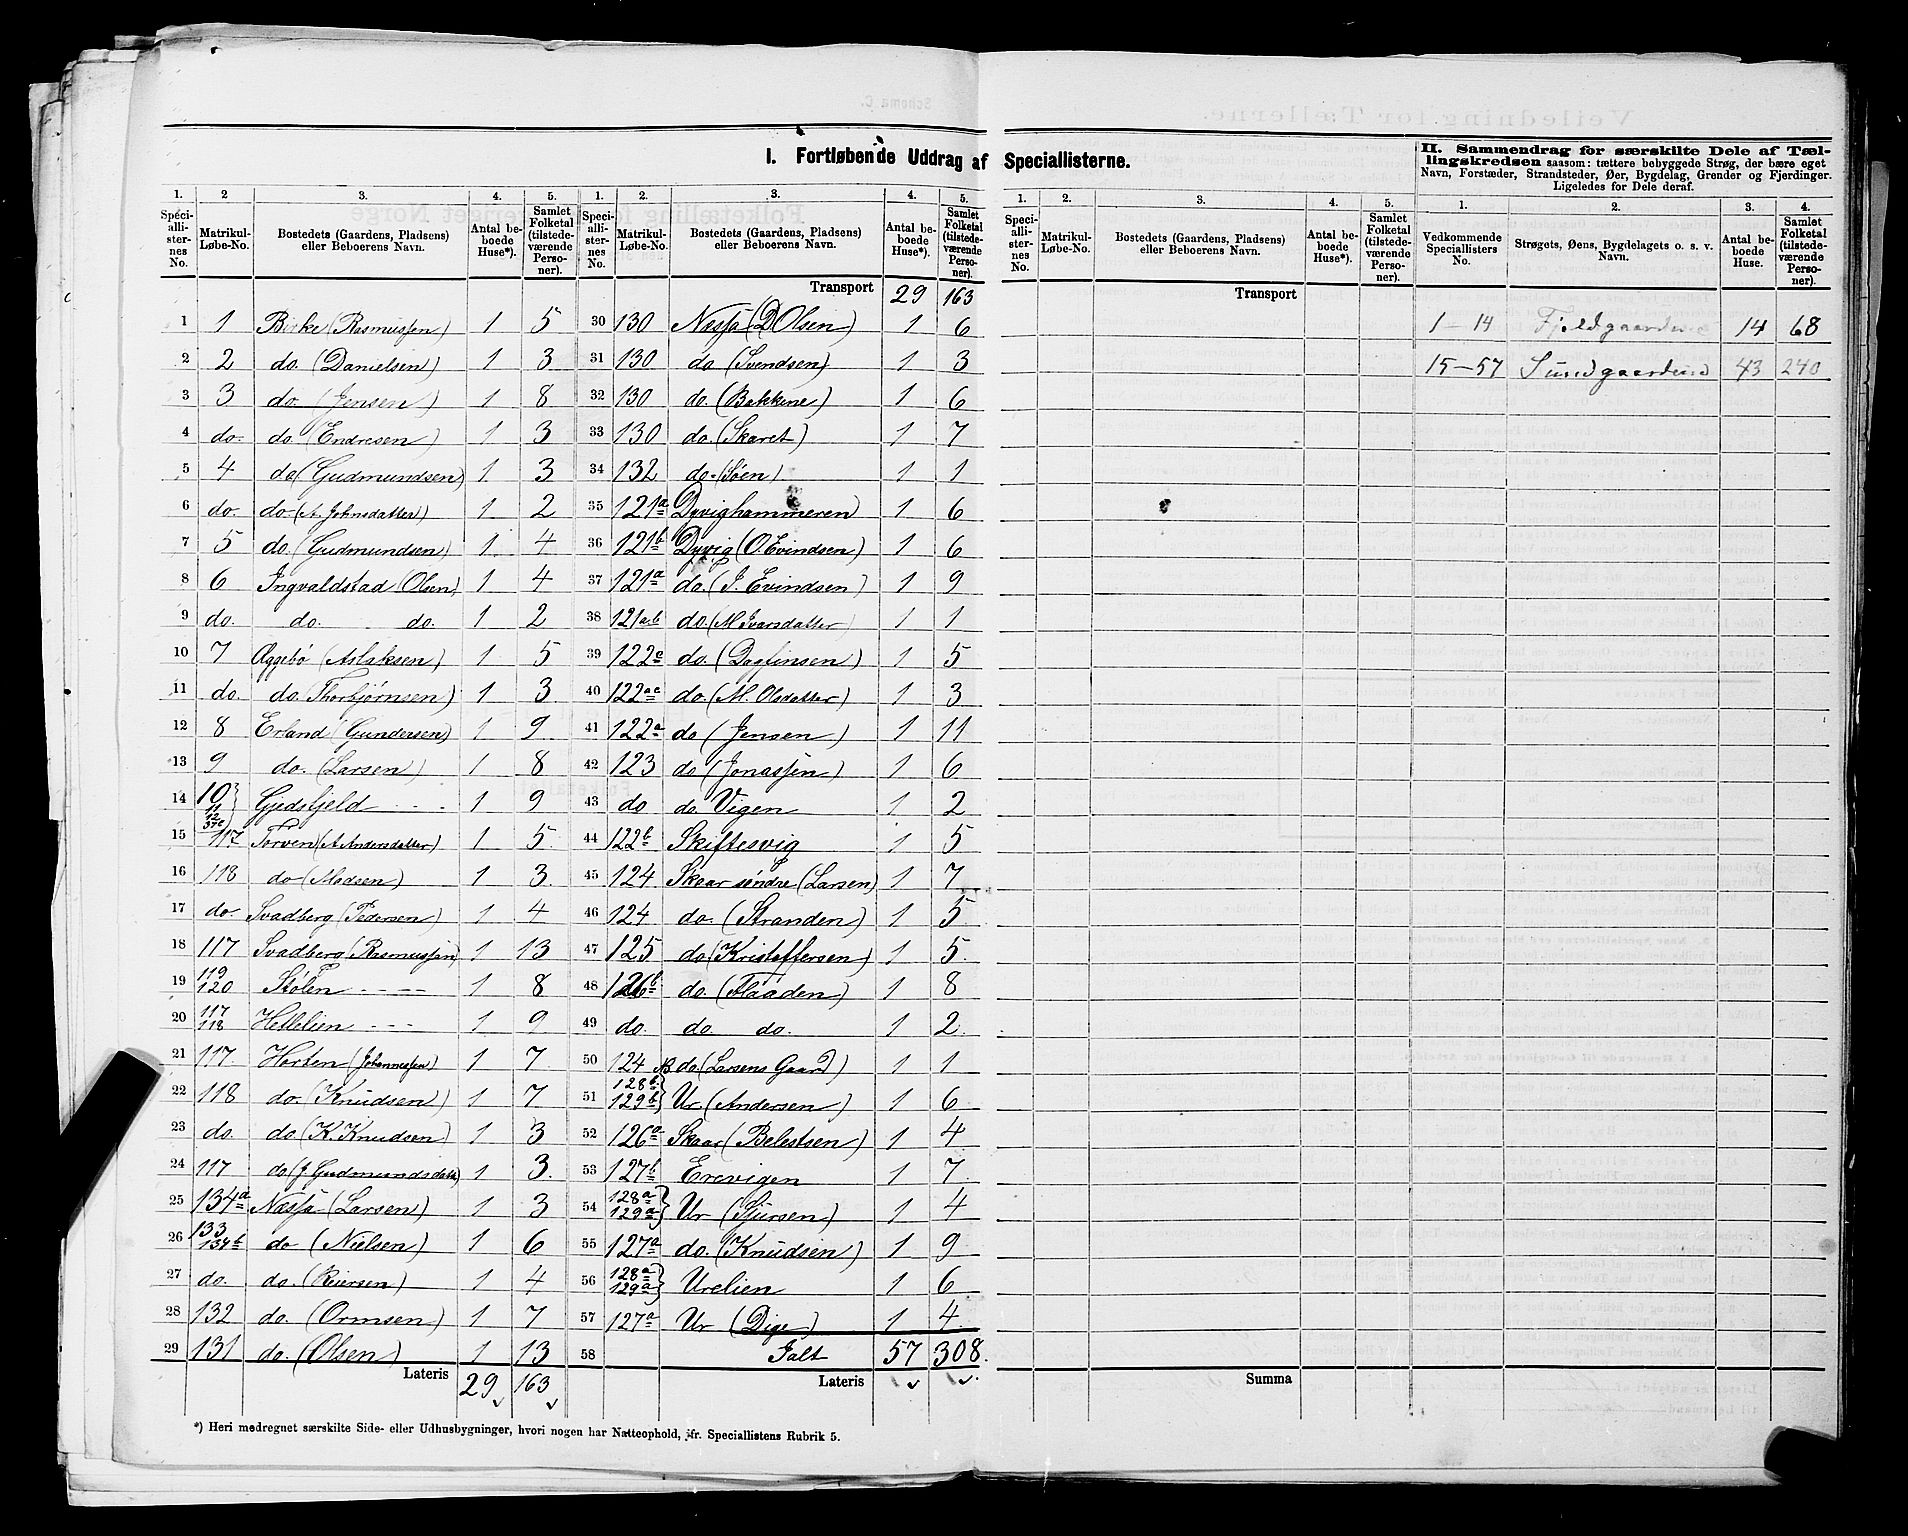 I. Fortløbende Uddrag af Speciallisterne.
II. Sammendrag for særskilte Dele af Tællingskredsen saasom: tættere bebyggede Strøg, der bære eget Navn, Forstæder, Strandsteder, Øer, Bygdelag, Grender og Fjerdinger. Ligeledes for Dele deraf.
1. 2 3. 4. 5. 1. 2. 3. 4. 5. 1. 2. 3. 4. 5.
Speciallisternes No. Matrikul-Løbe-No. Bostedets (Gaardens, Pladsens) eller Beboerens Navn. Antal beboede Huse*). Samlet Folketal (tilstedeværende Personer).
Speciallisternes No. Matrikul-Løbe-No. Bostedets (Gaardens, Pladsens) eller Beboerens Navn. Antal beboede Huse*). Samlet Folketal (tilstedeværende Personer).
Speciallisternes No. Matrikul-Løbe-No. Bostedets (Gaardens, Pladsens) eller Beboerens Navn. Antal beboede Huse*). Samlet Folketal (tilstedeværende Personer).
1. 2. 3. 4.
Vedkommende Speciallisters No. Strøgets, Øens, Bygdelagets o. s. v. Navn. Antal beboede Huse. Samlet Folketal (tilstedeværende Personer).
1 1 Birke (Rasmussen) 1 5
2 2 do. (Danielsen) 1 3
3 3 do. (Jensen) 1 8
4 do. do (Endresen) 1 3
5 4 do (Gudmundsen) 1 3
6 do. do. (A. Johnsdatter) 1 2
7 5 do. (Gudmundsen) 1 4
8 6 Ingvaldstad (Olsen) 1 4
9 do. do. do. 1 2
10 7 Øggebø (Aslaksen) 1 5
11 do. do. Thorbjørnsen) 1 3
12 8 Erland (Gundersen) 1 9
13 9 do. (Larsen) 1 8
14 10 11 12 37c} Gjedsfjeld 1 9
15 117 Torven (A Andersdatter) 1 5
16 118 do (Madsen) 1 3
17 do. Svadberg (Pedersen) 1 4
18 117 Svadberg (Rasmussen) 1 13
19 119 120 Stølen 1 8
20 117 118 Hellelien 1 9
21 117. Horten (Johannessen) 1 7
22 118 do. (Knudsen) 1 7
23 do. do (K. Knudsen) 1 3
24 117 do (J. Gudmundsdatt) 1 3.
25 134a Næssa (Larsen) 1 3
26 133 134b do (Nielsen) 1 6
27 do. do. (Reiersen) 1 4
28 132 do. (Ormsen) 1 7
29 131 do. (Olsen) 1 13
Lateris 29 163
Transport 29 163
30 130 Næssa (D Olsen) 1 6
31 130 do (Svendsen) 1 3
32 130 do. (Bakkene) 1 6
33 130 do. (Skaret) 1 7
34 132 do. (Søen) 1 1
35 121a Dyvighammeren 1 6
36 121b Dyvig (O. Evindsen) 1 6
37 121a do. (J. Evindsen) 1 9
38 121a.b do. (M Ivarsdatter 1 1
39 122c do. (Dagfinsen) 1 5
40 122ac do. (M. Olsdatter) 1 3
41 122a do (Jensen) 1 11
42 123 do (Jonassen) 1 6
43 do do. Vigen 1 2
44 122b Skiftesvig 1 5
45 124 Skaar søndre (Larsen) 1 7
46 124 do. (Stranden) 1 5
47 125 do (Kristoffersen) 1 5.
48 126b do. (Flaaden) 1 8
49 do. do do. 1 2.
50 124 do (Larsens Gaard) 1 1
51 128b 129b} Ur (Andersen) 1 6
52 126a Skaar (Belestsen) 1 4
53 127b Erevigen 1 7
54 128a 129a} Ur (Sjursen) 1 4
55 127a do. (Knudsen) 1 9
56 128a 129a} Urelien 1 6
57 127a Ur (Dige) 1 4
58 Ialt 57 308.
Lateris
Transport
Summa
1–14 Fjeldgaardene 14 68
15–57 Sundgaardene 43 240
*) Heri medregnet særskilte Side- eller Udhusbygninger, hvori nogen har Natteophold, jfr. Speciallistens Rubrik 5.